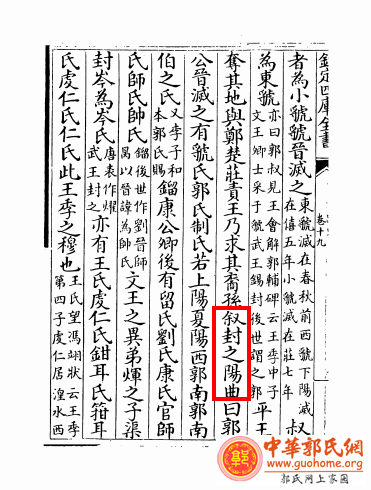 欽定四庫全書
卷十九
者為小虢虢晉滅之東虢滅在春秋前西虢下陽滅在僖五年小虢滅在莊七年叔
為東虢亦曰郭叔見王會解郭輔碑云王季中子文王卿士采于虢武王錫封後世謂之郭平王
奪其地與鄭楚莊責王乃求其裔孫叙封之陽曲曰郭
公晉滅之有虢氏郭氏制氏若上陽夏陽西郭南郭南
伯之氏又李子和本郭氏賜鎦康公卿後有留氏劉氏康氏官師
氏師氏帥氏鎦後世作劉晉師昺以晉諱為帥氏文王之異弟煇之子渠
封岑為岑氏唐表作燿武王封之亦有王氏虔仁氏鉗耳氏箝耳
氏虔仁氏仁氏此王季之穆也王氏望馮翊狀云王季第四子虔仁居湟水西
中華郭氏網
www.guohome.org
郭氏网上家园